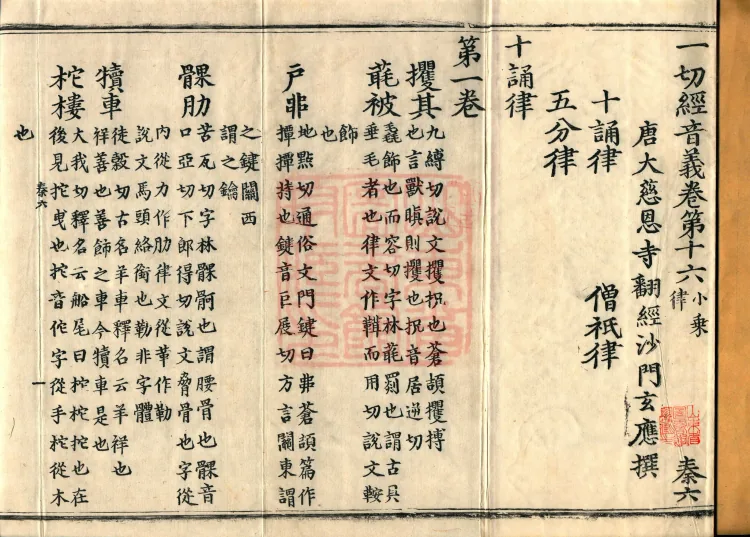 一切經音義卷第十六 小乘律 秦六
唐大慈恩寺翻經沙門玄應撰
十誦律 僧祇律
五分律
十誦律
第一卷
攫其 九縛切說文攫扟也蒼頡攫搏
也言獸瞋則攫也扟音居逆切
毦被 毳飾也而容切字林毦罽也謂古具
垂毛者也律文作鞲而用切說文鞍
飾也
戶排 地點切通俗文門鍵曰串蒼頡篇作
撣撣持也鍵音巨展切方言關東謂
之鍵關西
謂之鑰
髁肋 苦瓦切字林髁骻也謂腰骨也髁音
口亞切下郎得切說文脅骨也字從
肉從力作肋律文從革作勒
說文馬頭絡銜也勒非字體
犢車 徒穀切古名羊車釋名云羊祥也
祥善也善飾之車今犢車是也
柁樓 大我切釋名云船尾曰柁柁拕也在
後見拕曳也拕音佗字從手柁從木
秦六 一
也